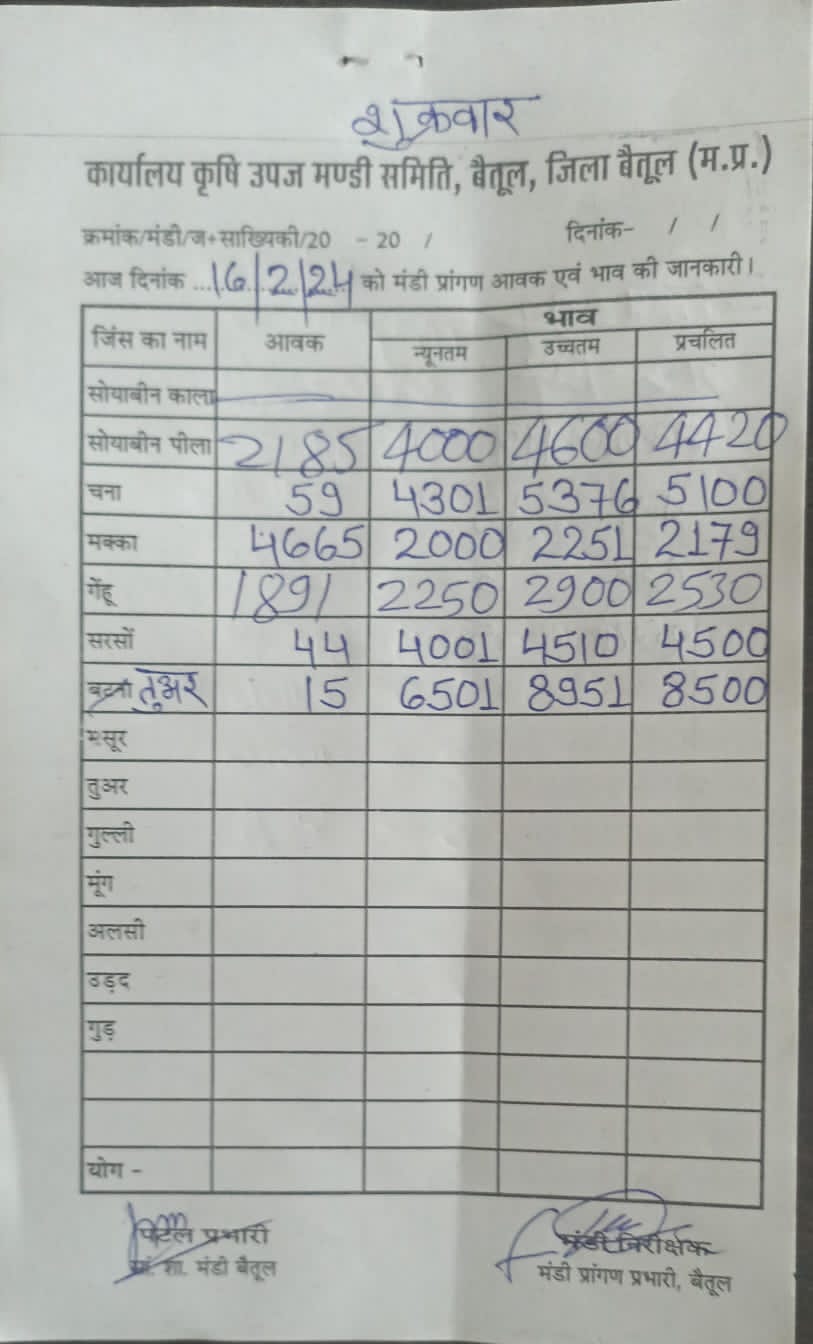 शुक्रवार
कार्यालय कृषि उपज मण्डी समिति, बैतूल, जिला बैतूल (म.प्र.)
क्रमांक/मंडी/ज+साख्यिकी/20 - 20 / दिनांक- / /
आज दिनांक ...16/2/24 को मंडी प्रांगण आवक एवं भाव की जानकारी।
जिंस का नाम आवक भाव
न्यूनतम उच्चतम प्रचलित
सोयाबीन काला
सोयाबीन पीला 2185 4000 4600 4420
चना 59 4301 5376 5100
मक्का 4665 2000 2251 2179
गेंहू 1891 2250 2900 2530
सरसों 44 4001 4510 4500
बटना तुअर 15 6501 8951 8500
मसूर
तुअर
गुल्ली
मूंग
अलसी
उड़द
गुड़
योग -
प्रभारी मंडी निरीक्षक
शा. मंडी बैतूल मंडी प्रांगण प्रभारी, बैतूल